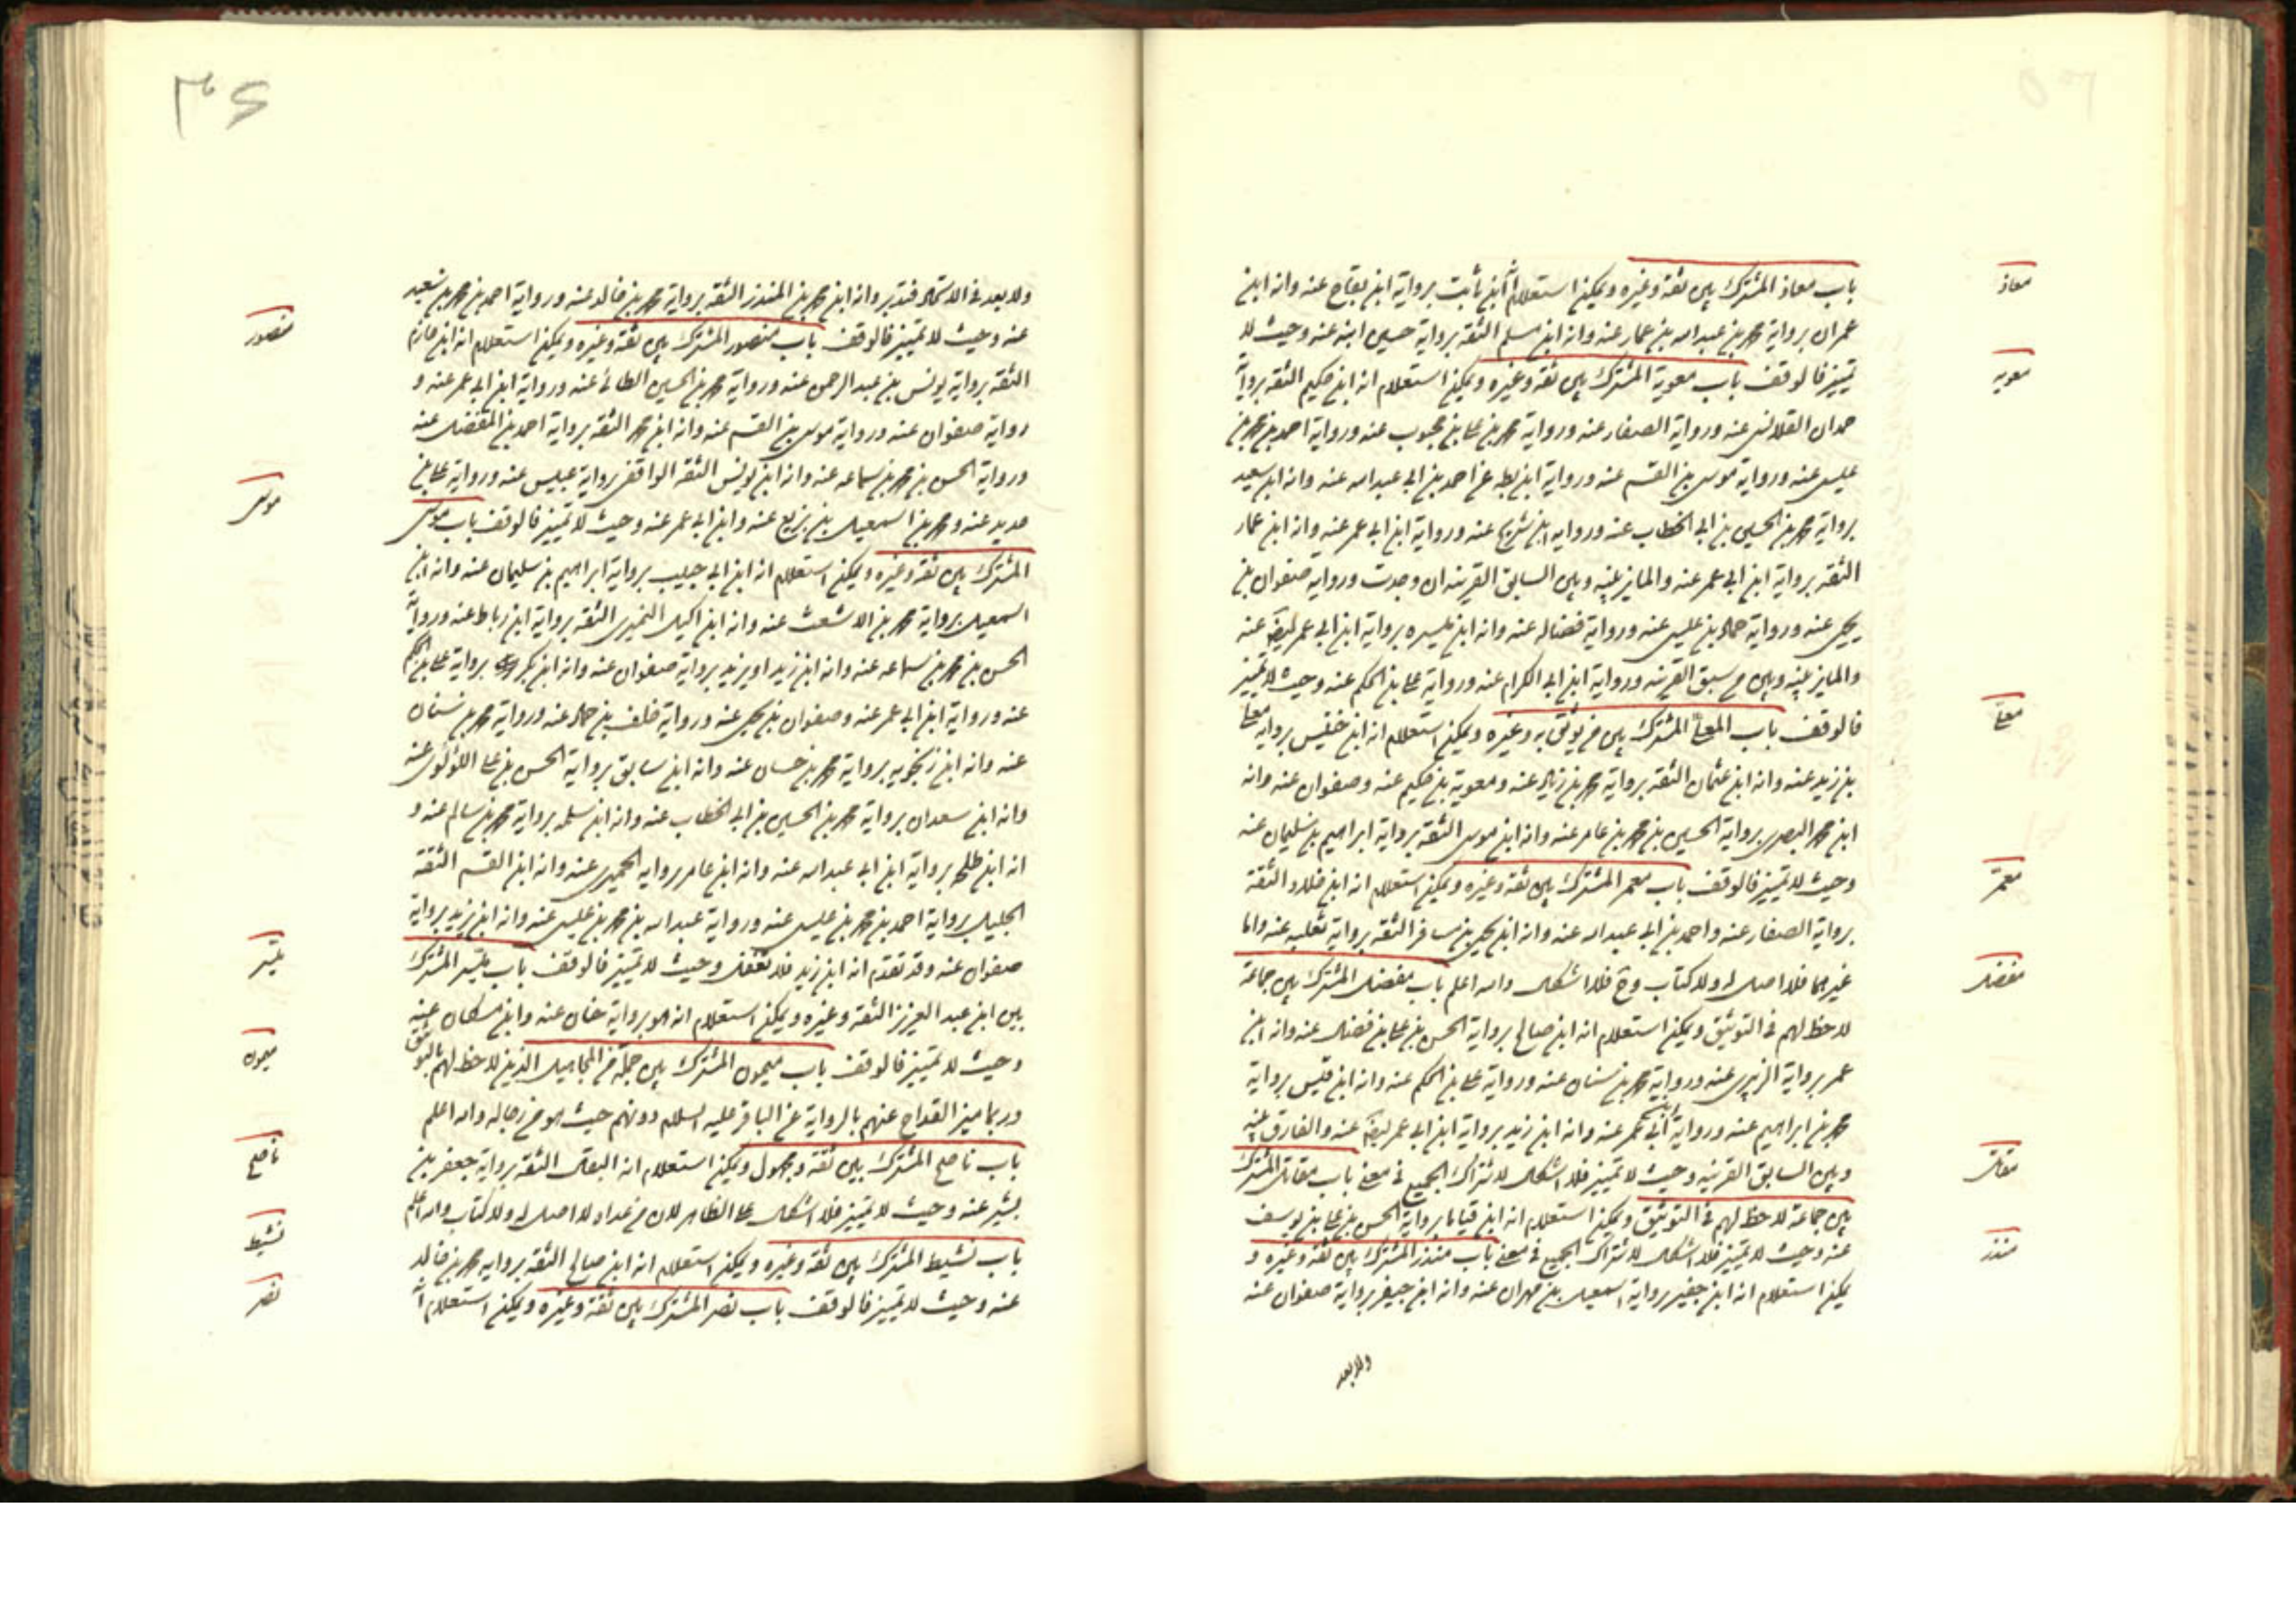 باب معاذ المشترك بين ثقة وغيره ويمكن استعلام انه ابن ثابت برواية ابن بقاح عنه وانه ابن
معاذ
عمران برواية محمد بن عبد الله بن عمار عنه وانه ابن مسلم الثقة برواية حسين ابنه عنه وحيث لا
تمييز فالوقف باب معوية المشترك بين ثقة وغيره ويمكن استعلام انه ابن حكيم الثقة برواية
معويه
حمدان القلانسى عنه ورواية الصفار عنه ورواية محمد بن على بن محبوب عنه ورواية احمد بن محمد بن
عيسى عنه ورواية موسى بن القسم عنه ورواية ابن بطه عن احمد بن ابى عبد الله عنه وانه ابن سعيد
برواية محمد بن الحسين بن ابى الخطاب عنه ورواية ابن شريح عنه ورواية ابن ابى عمر عنه وانه ابن عمار
الثقه برواية ابن ابى عمر عنه والمايز بينه وبين السابق القرينه ان وجدت ورواية صفوان بن
يحيى عنه ورواية حماد بن عيسى عنه ورواية فضاله عنه وانه ابن ميسره برواية ابن ابى عمر ايضا عنه
والمايز بينه وبين من سبق القرينه ورواية ابن ابى الكرام عنه ورواية على بن الحكم عنه وحيث لا تمييز
فالوقف باب المعلى المشترك بين من يوثق به وغيره ويمكن استعلام انه ابن خنيس برواية معلى
معلى
بن زيد عنه وانه ابن عثمان الثقه برواية محمد بن زياد عنه ومعوية بن حكيم عنه وصفوان عنه وانه
ابن محمد البصرى برواية الحسين بن محمد بن عامر عنه وانه ابن موسى الثقة برواية ابراهيم بن سليمان عنه
وحيث لا تمييز فالوقف باب معمر المشترك بين ثقة وغيره ويمكن استعلام انه ابن خلاد الثقة
معمر
برواية الصفار عنه واحمد بن ابى عبد الله عنه وانه ابن يحيى بن سافر الثقه برواية ثعلبه عنه واما
غيرهما فلا اصل له ولا كتاب وح فلا اشكال والله اعلم باب مفضل المشترك بين جماعة
مفضل
لا حظ لهم فى التوثيق ويمكن استعلام انه ابن صالح برواية الحسن بن على بن فضال عنه وانه ابن
عمر برواية الزبيرى عنه ورواية محمد بن سنان عنه ورواية على بن الحكم عنه وانه ابن قيس برواية
محمد بن ابراهيم عنه ورواية ابن ابى عمر عنه وانه ابن زيد برواية ابن ابى عمر ايضا عنه والفارق بينه
وبين السابق القرينه وحيث لا تمييز فلا اشكال لاشتراك الجميع فى معنى باب مقاتل المشترك
مقاتل
بين جماعة لا حظ لهم فى التوثيق ويمكن استعلام انه ابن قياما برواية الحسن بن على بن يوسف
عنه وحيث لا تمييز فلا اشكال لاشتراك الجميع فى معنى باب منذر المشترك بين ثقة وغيره و
منذر
يمكن استعلام انه ابن جفير برواية اسمعيل بن مهران عنه وانه ابن جيفر برواية صفوان عنه
ولا بعد
٣٦
ولا بعد فى الاتحاد فتدبر وانه ابن محمد بن المنذر الثقه برواية محمد بن خالد عنه ورواية احمد بن محمد بن سعيد
عنه وحيث لا تمييز فالوقف باب منصور المشترك بين ثقة وغيره ويمكن استعلام انه ابن حازم
منصور
الثقه برواية يونس بن عبد الرحمن عنه ورواية محمد بن الحسين الطائى عنه ورواية ابن ابى عمر عنه و
رواية صفوان عنه ورواية موسى بن القسم عنه وانه ابن محمد الثقه برواية احمد بن المفضل عنه
ورواية الحسن بن محمد بن سماعه عنه وانه ابن يونس الثقه الواقفى برواية عبيس عنه ورواية على بن
حديد عنه ومحمد بن اسمعيل بن بزيع عنه وابن ابى عمر عنه وحيث لا تمييز فالوقف باب موسى
موسى
المشترك بين ثقة وغيره ويمكن استعلام انه ابن ابى حبيب برواية ابراهيم بن سليمان عنه وانه ابن
اسمعيل برواية محمد بن الاشعث عنه وانه ابن اكيل النميرى الثقه برواية ابن رباط عنه ورواية
الحسن بن محمد بن سماعه عنه وانه ابن زيد او يزيد برواية صفوان عنه وانه ابن بكر برواية على بن الحكم
عنه ورواية ابن ابى عمر عنه وصفوان بن يحيى عنه ورواية خلف بن حماد عنه ورواية محمد بن سنان
عنه وانه ابن زنجويه برواية محمد بن حسان عنه وانه ابن سابق برواية الحسن بن على اللؤلؤى عنه
وانه ابن سعدان برواية محمد بن الحسين بن ابى الخطاب عنه وانه ابن سلمه برواية محمد بن سالم عنه و
انه ابن طلحه برواية ابن ابى عبد الله عنه وانه ابن عامر برواية الحميرى عنه وانه ابن القسم الثقة
الجليل برواية احمد بن محمد بن عيسى عنه ورواية عبد الله بن محمد بن عيسى عنه وانه ابن زيد برواية
صفوان عنه وقد تقدم انه ابن زيد فلا تغفل وحيث لا تمييز فالوقف باب ميسر المشترك
ميسر
بين ابن عبد العزيز الثقه وغيره ويمكن استعلام انه هو برواية حنان عنه وابن مسكان عنه
وحيث لا تمييز فالوقف باب ميمون المشترك بين جملة من المجاهيل الذين لا حظ لهم بالتوثيق
ميمون
وربما ميز القداح عنهم بالرواية عن الباقر عليه السلام دونهم حيث هو من رجاله والله اعلم
باب ناصح المشترك بين ثقة ومجهول ويمكن استعلام انه البقال الثقة برواية جعفر بن
ناصح
بشير عنه وحيث لا تمييز فلا اشكال على الظاهر لان من عداه لا اصل له ولا كتاب والله اعلم
باب نشيط المشترك بين ثقة وغيره ويمكن استعلام انه ابن صالح الثقه برواية محمد بن خالد
نشيط
عنه وحيث لا تمييز فالوقف باب نصر المشترك بين ثقة وغيره ويمكن استعلام انه
نصر